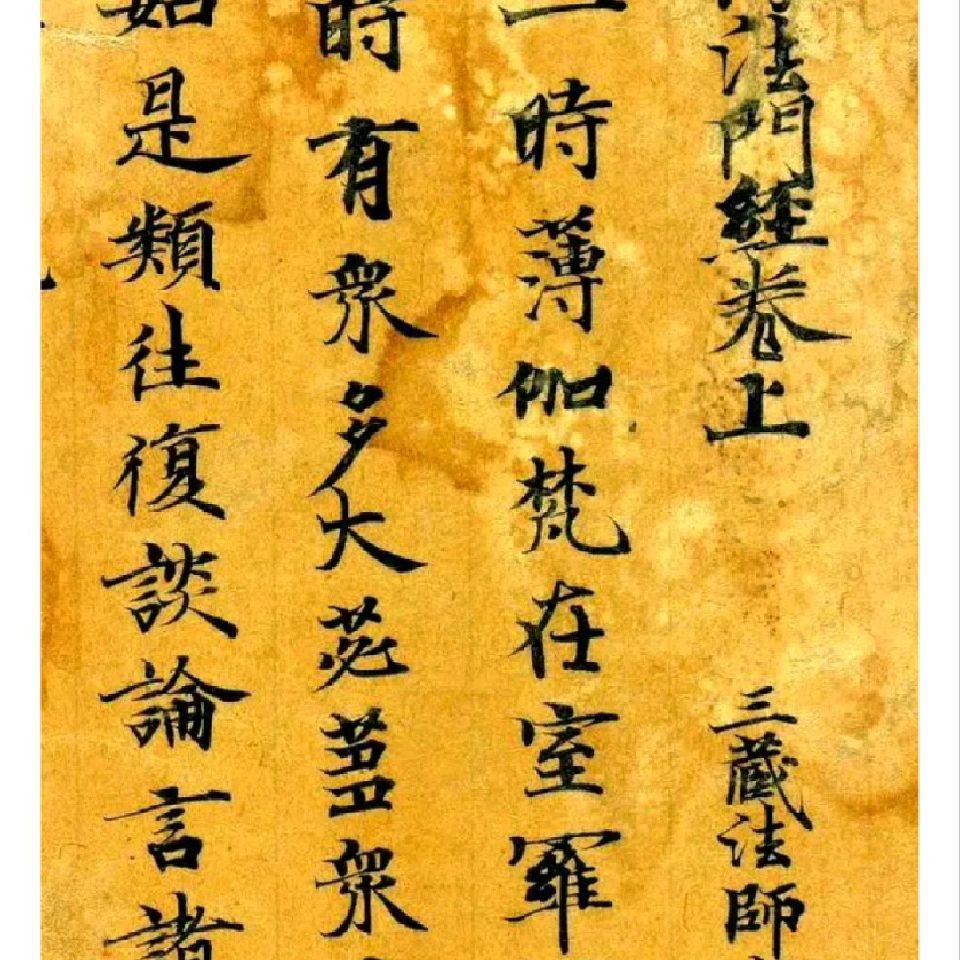 法門經卷上 三藏法師
一時薄伽梵在室羅
時有眾多大苾蒭眾
如是類往復談論言諸